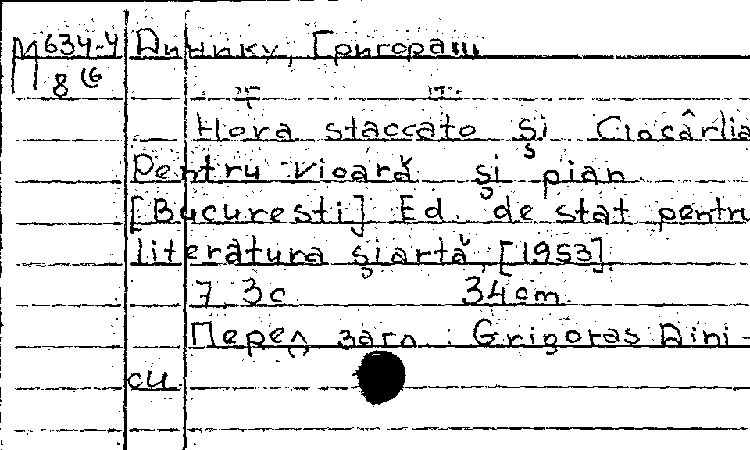 М 634-4 Динику, Григораш
8
Hora staccato și Ciocârlia
Pentru vioară și pian
[Bucuresti] Ed. de stat pentru
literatura șiartă, [1953].
7, 3c 34cm.
Перед загл.: Grigoras Dini-
cu